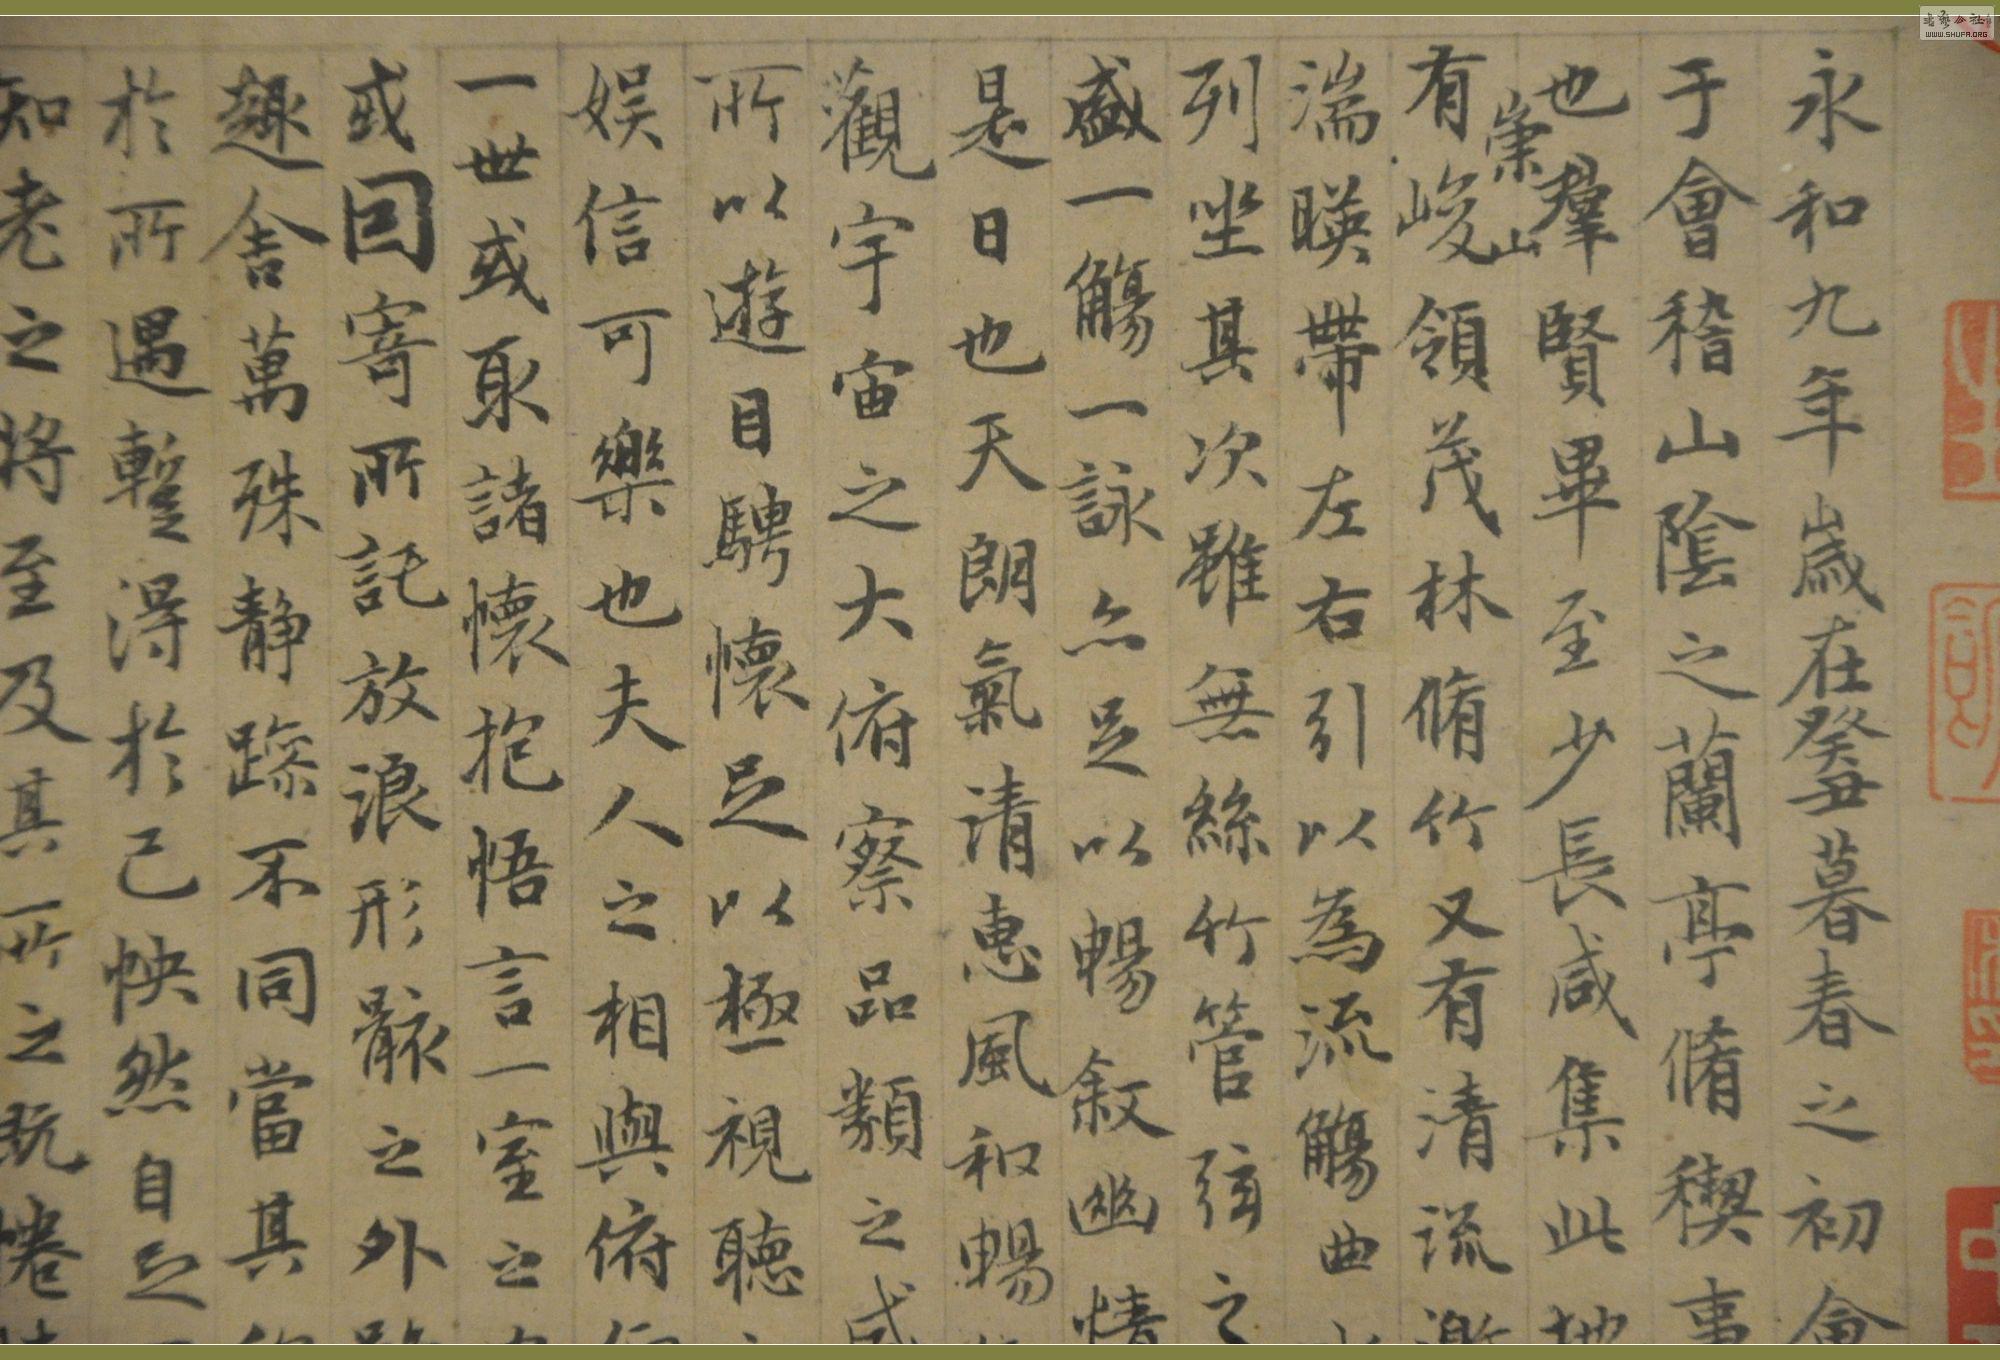 永和九年歲在癸丑暮春之初會
于會稽山陰之蘭亭脩稧事
也羣賢畢至少長咸集此地
有峻領茂林脩竹又有清流激
崇山
湍暎帶左右引以為流觴曲水
列坐其次雖無絲竹管弦之
盛一觴一詠亦足以暢敘幽情
是日也天朗氣清惠風和暢
觀宇宙之大俯察品類之盛
所以遊目騁懷足以極視聽
娛信可樂也夫人之相與俯仰
一世或取諸懷抱悟言一室之
或因寄所託放浪形骸之外
趣舍萬殊静躁不同當其
於所遇蹔得於己怏然自足
知老之将至及其所之既惓
WWW.SHUFA.ORG